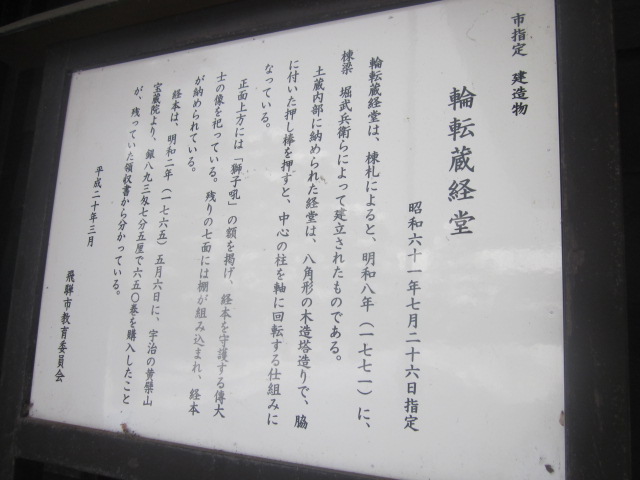 市指定 建造物
輪転蔵経堂
昭和六十一年七月二十六日指定
輪転蔵経堂は、棟札によると、明和八年(一七七一)に、
棟梁 堀武兵衛らによって建立されたものである。
土蔵内部に納められた経堂は、八角形の木造塔造りで、脇
に付いた押し棒を押すと、中心の柱を軸に回転する仕組みに
なっている。
正面上方には「獅子吼」の額を掲げ、経本を守護する傅大
士の像を祀っている。残りの七面には棚が組み込まれ、経本
が納められている。
経本は、明和二年(一七六五)五月六日に、宇治の黄檗山
宝蔵院より、銀八九三匁七分五厘で六五〇巻を購入したこと
が、残っていた領収書から分かっている。
平成二十年三月
飛騨市教育委員会